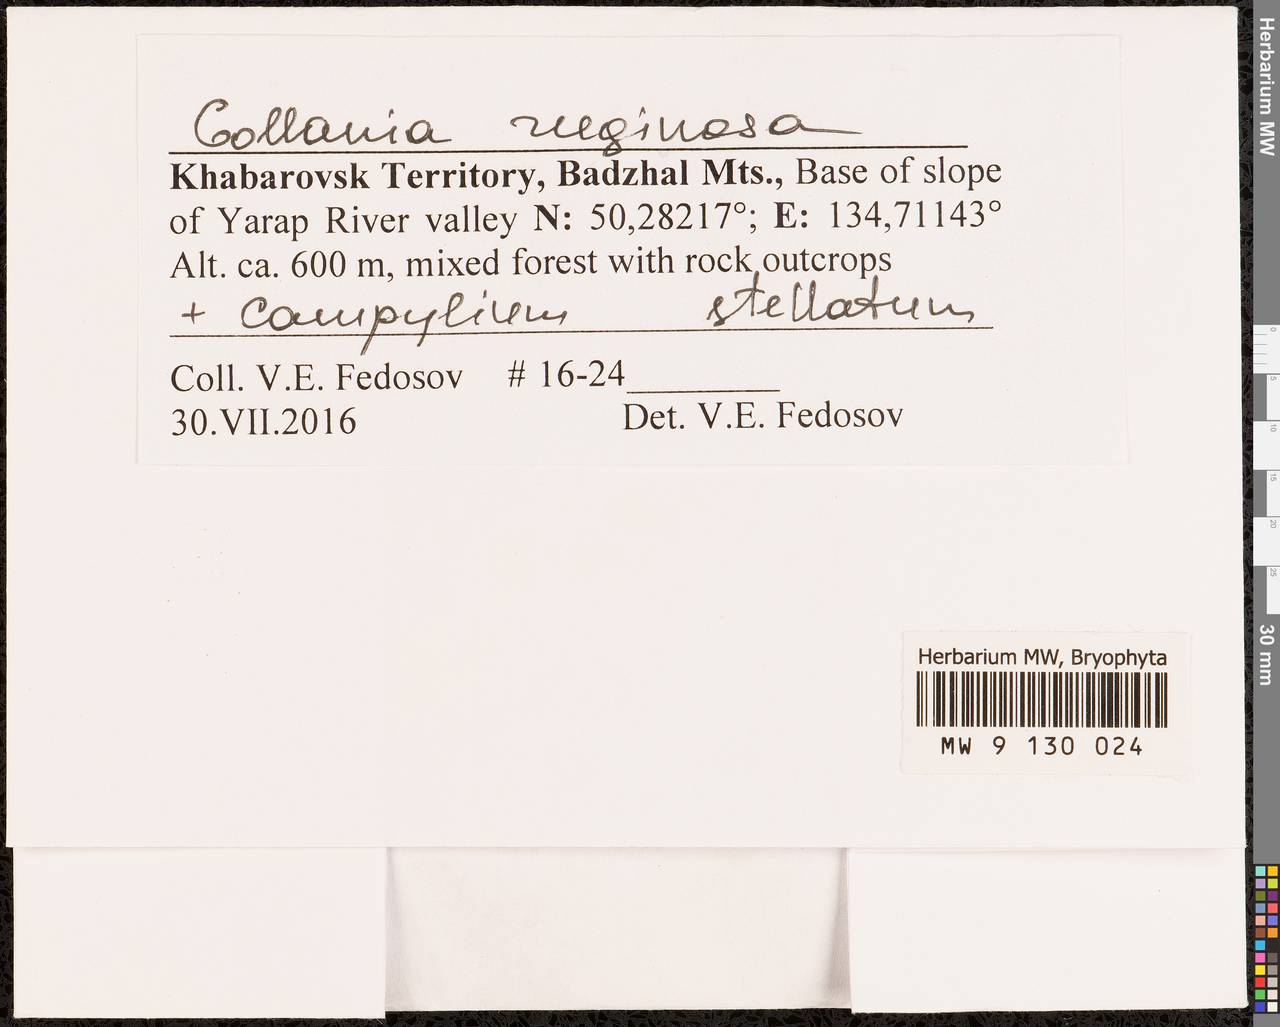 Gollania ruginosa
Khabarovsk Territory, Badzhal Mts., Base of slope
of Yarap River valley N: 50,28217°; E: 134,71143°
Alt. ca. 600 m, mixed forest with rock outcrops
+ Campylium stellatum
Coll. V.E. Fedosov # 16-24
30.VII.2016 Det. V.E. Fedosov
Herbarium MW, Bryophyta
MW 9 130 024
Herbarium MW
0
5
10
15
20
25
30 mm